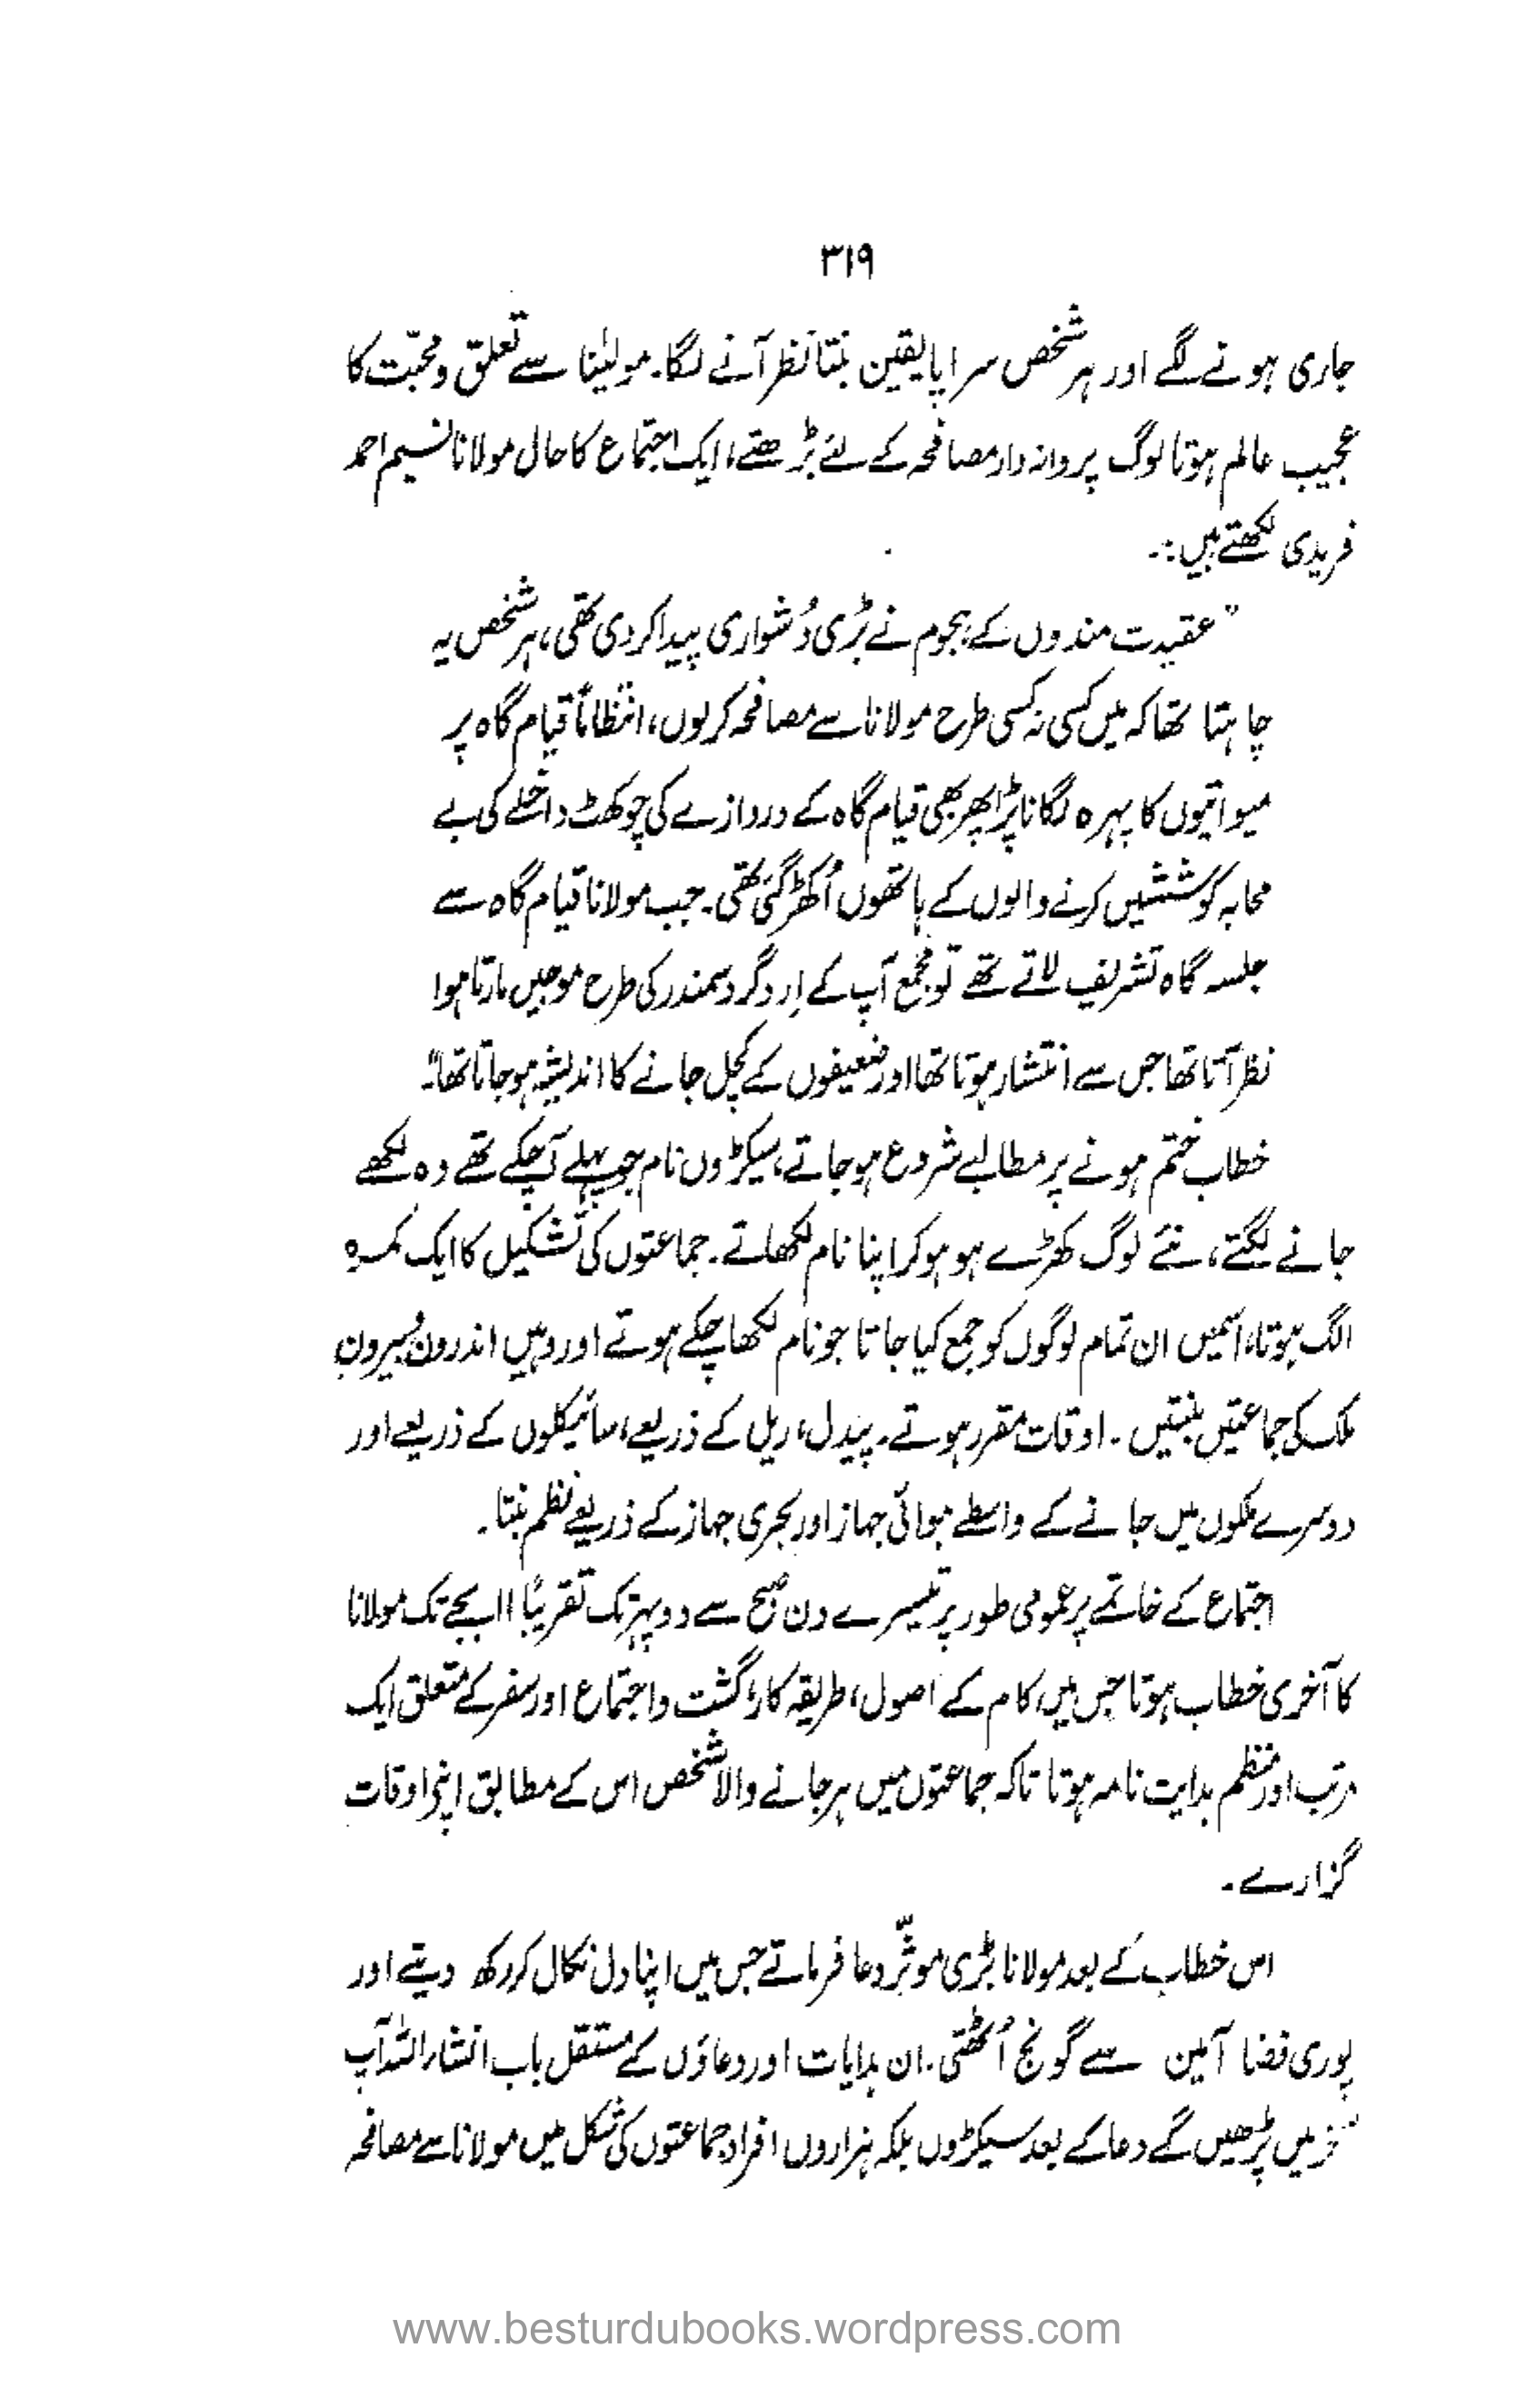 ۳۱۹
جاری ہونے لگے اور ہر شخص سراپا یقین بنتا نظر آنے لگا۔ مولیٰنا سے تعلق و محبّت کا
عجیب عالم ہوتا لوگ پروانہ وار مصافحہ کے لئے بڑھتے، ایک اجتماع کا حال مولانا نسیم احمد
فریدی لکھتے ہیں:۔
"عقیدت مندوں کے ہجوم نے بڑی دُشواری پیدا کر دی تھی، ہر شخص یہ
چاہتا تھا کہ میں کسی نہ کسی طرح مولانا سے مصافحہ کر لوں، انتظاماً قیام گاہ پر
میواتیوں کا پہرہ لگانا پڑا پھر بھی قیام گاہ کے دروازے کی چوکھٹ داخلے کی بے
محابہ کوششیں کرنے والوں کے ہاتھوں اُکھڑ گئی تھی۔ جب مولانا قیام گاہ سے
جلسہ گاہ تشریف لاتے تھے تو مجمع آپ کے اِرد گرد سمندر کی طرح موجیں مارتا ہوا
نظر آتا تھا جس سے انتشار ہوتا تھا اور ضعیفوں کے کچل جانے کا اندیشہ ہو جاتا تھا"۔
خطاب ختم ہونے پر مطالبے شروع ہو جاتے، سیکڑوں نام جو پہلے آ چکے تھے وہ لکھے
جانے لگتے، نئے لوگ کھڑے ہو ہو کر اپنا نام لکھاتے۔ جماعتوں کی تشکیل کا ایک کمرہ
الگ ہوتا، اسمیں ان تمام لوگوں کو جمع کیا جاتا جو نام لکھا چکے ہوتے اور وہیں اندرون و بیرون
ملک کی جماعتیں بنتیں۔ اوقات مقرر ہوتے۔ پیدل، ریل کے ذریعے، سائیکلوں کے ذریعے اور
دوسرے ملکوں میں جانے کے واسطے ہوائی جہاز اور بحری جہاز کے ذریعے نظم بنتا۔
اجتماع کے خاتمے پر عمومی طور پر تیسرے دن صبح سے دوپہر تک تقریباً ۱۱ بجے تک مولانا
کا آخری خطاب ہوتا جس میں کام کے اصول، طریقۂ کار، گشت و اجتماع اور سفر کے متعلق ایک
مرتب اور منظم ہدایت نامہ ہوتا تاکہ جماعتوں میں ہر جانے والا شخص اس کے مطابق اپنے اوقات
گزارے۔
اس خطاب کے بعد مولانا بڑی موثّر دعا فرماتے جس میں اپنا دل نکال کر رکھ دیتے اور
پوری فضا آمین سے گونج اُٹھتی۔ ان ہدایات اور دعاؤں کے مستقل باب انشاء اللہ آپ
میں پڑھیں گے دعا کے بعد سیکڑوں بلکہ ہزاروں افراد جماعتوں کی شکل میں مولانا سے مصافحہ
www.besturdubooks.wordpress.com